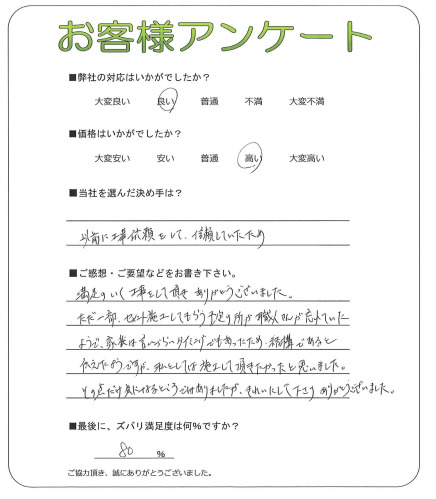 お客様アンケート
■弊社の対応はいかがでしたか?
大変良い 良い 普通 不満 大変不満
■価格はいかがでしたか?
大変安い 安い 普通 高い 大変高い
■当社を選んだ決め手は?
以前に工事依頼をして、信頼していたため
■ご感想・ご要望などをお書き下さい。
満足のいく工事をして頂き ありがとうございました。
ただ一部、施工してもらう予定の所が職人さんが忘れていた
ようで、家族は言いづらいタイミングでもあったため 結構であると
伝えたようですが、私としては施工して頂きたかったと思いました。
その点だけ気になるところではありましたが、きれいにして下さり ありがとうございました。
■最後に、ズバリ満足度は何%ですか?
80 %
ご協力頂き、誠にありがとうございました。